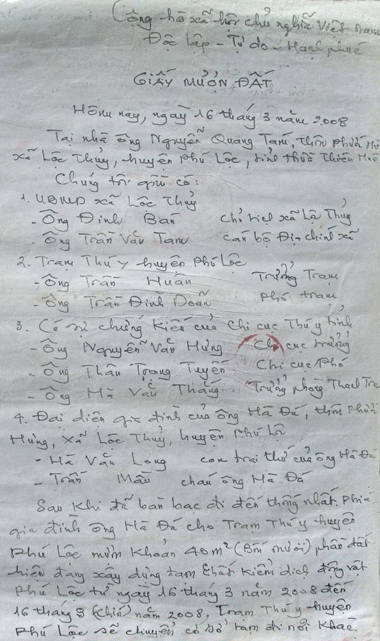 Cộng hòa xã hội chủ nghĩa Việt Nam
Độc lập - Tự do - Hạnh phúc
GIẤY MƯỢN ĐẤT
Hôm nay, ngày 16 tháng 3 năm 2008
Tại nhà ông Nguyễn Quang Tám, thôn Phước Hư
xã Lộc Thủy, huyện Phú Lộc, tỉnh Thừa Thiên Huế
Chúng tôi gồm có:
1. UBND xã Lộc Thủy
- Ông Đinh Bán Chủ tịch xã Lộc Thủy
- Ông Trần Văn Tam cán bộ Địa chính xã
2. Trạm Thú y huyện Phú Lộc
- Ông Trần Huấn Trưởng Trạm
- Ông Trần Đình Doãn Phó trạm
3. Có sự chứng kiến của Chi cục Thú y tỉnh
- Ông Nguyễn Văn Hưng Chi cục trưởng
- Ông Thân Trọng Tuyển Chi cục Phó
- Ông Hà Văn Thắng Trưởng phòng
4. Đại diện gia đình của ông Hà Đá, thôn Phước
Hưng, xã Lộc Thủy, huyện Phú Lộc
- Hà Văn Long con trai thứ của ông Hà Đá
- Trần Mầu cháu ông Hà Đá
Sau khi đã bàn bạc đi đến thống nhất phía
gia đình ông Hà Đá cho Trạm Thú y huyện
Phú Lộc mượn khoản 40m² (Bốn mươi) phần đất
hiện đang xây dựng tạm chốt kiểm dịch động vật
Phú Lộc từ ngày 16 tháng 3 năm 2008 đến
16 tháng 9 (chín) năm 2008, Trạm Thú y huyện
Phú Lộc sẽ chuyển cơ sở tạm đi nơi khác.